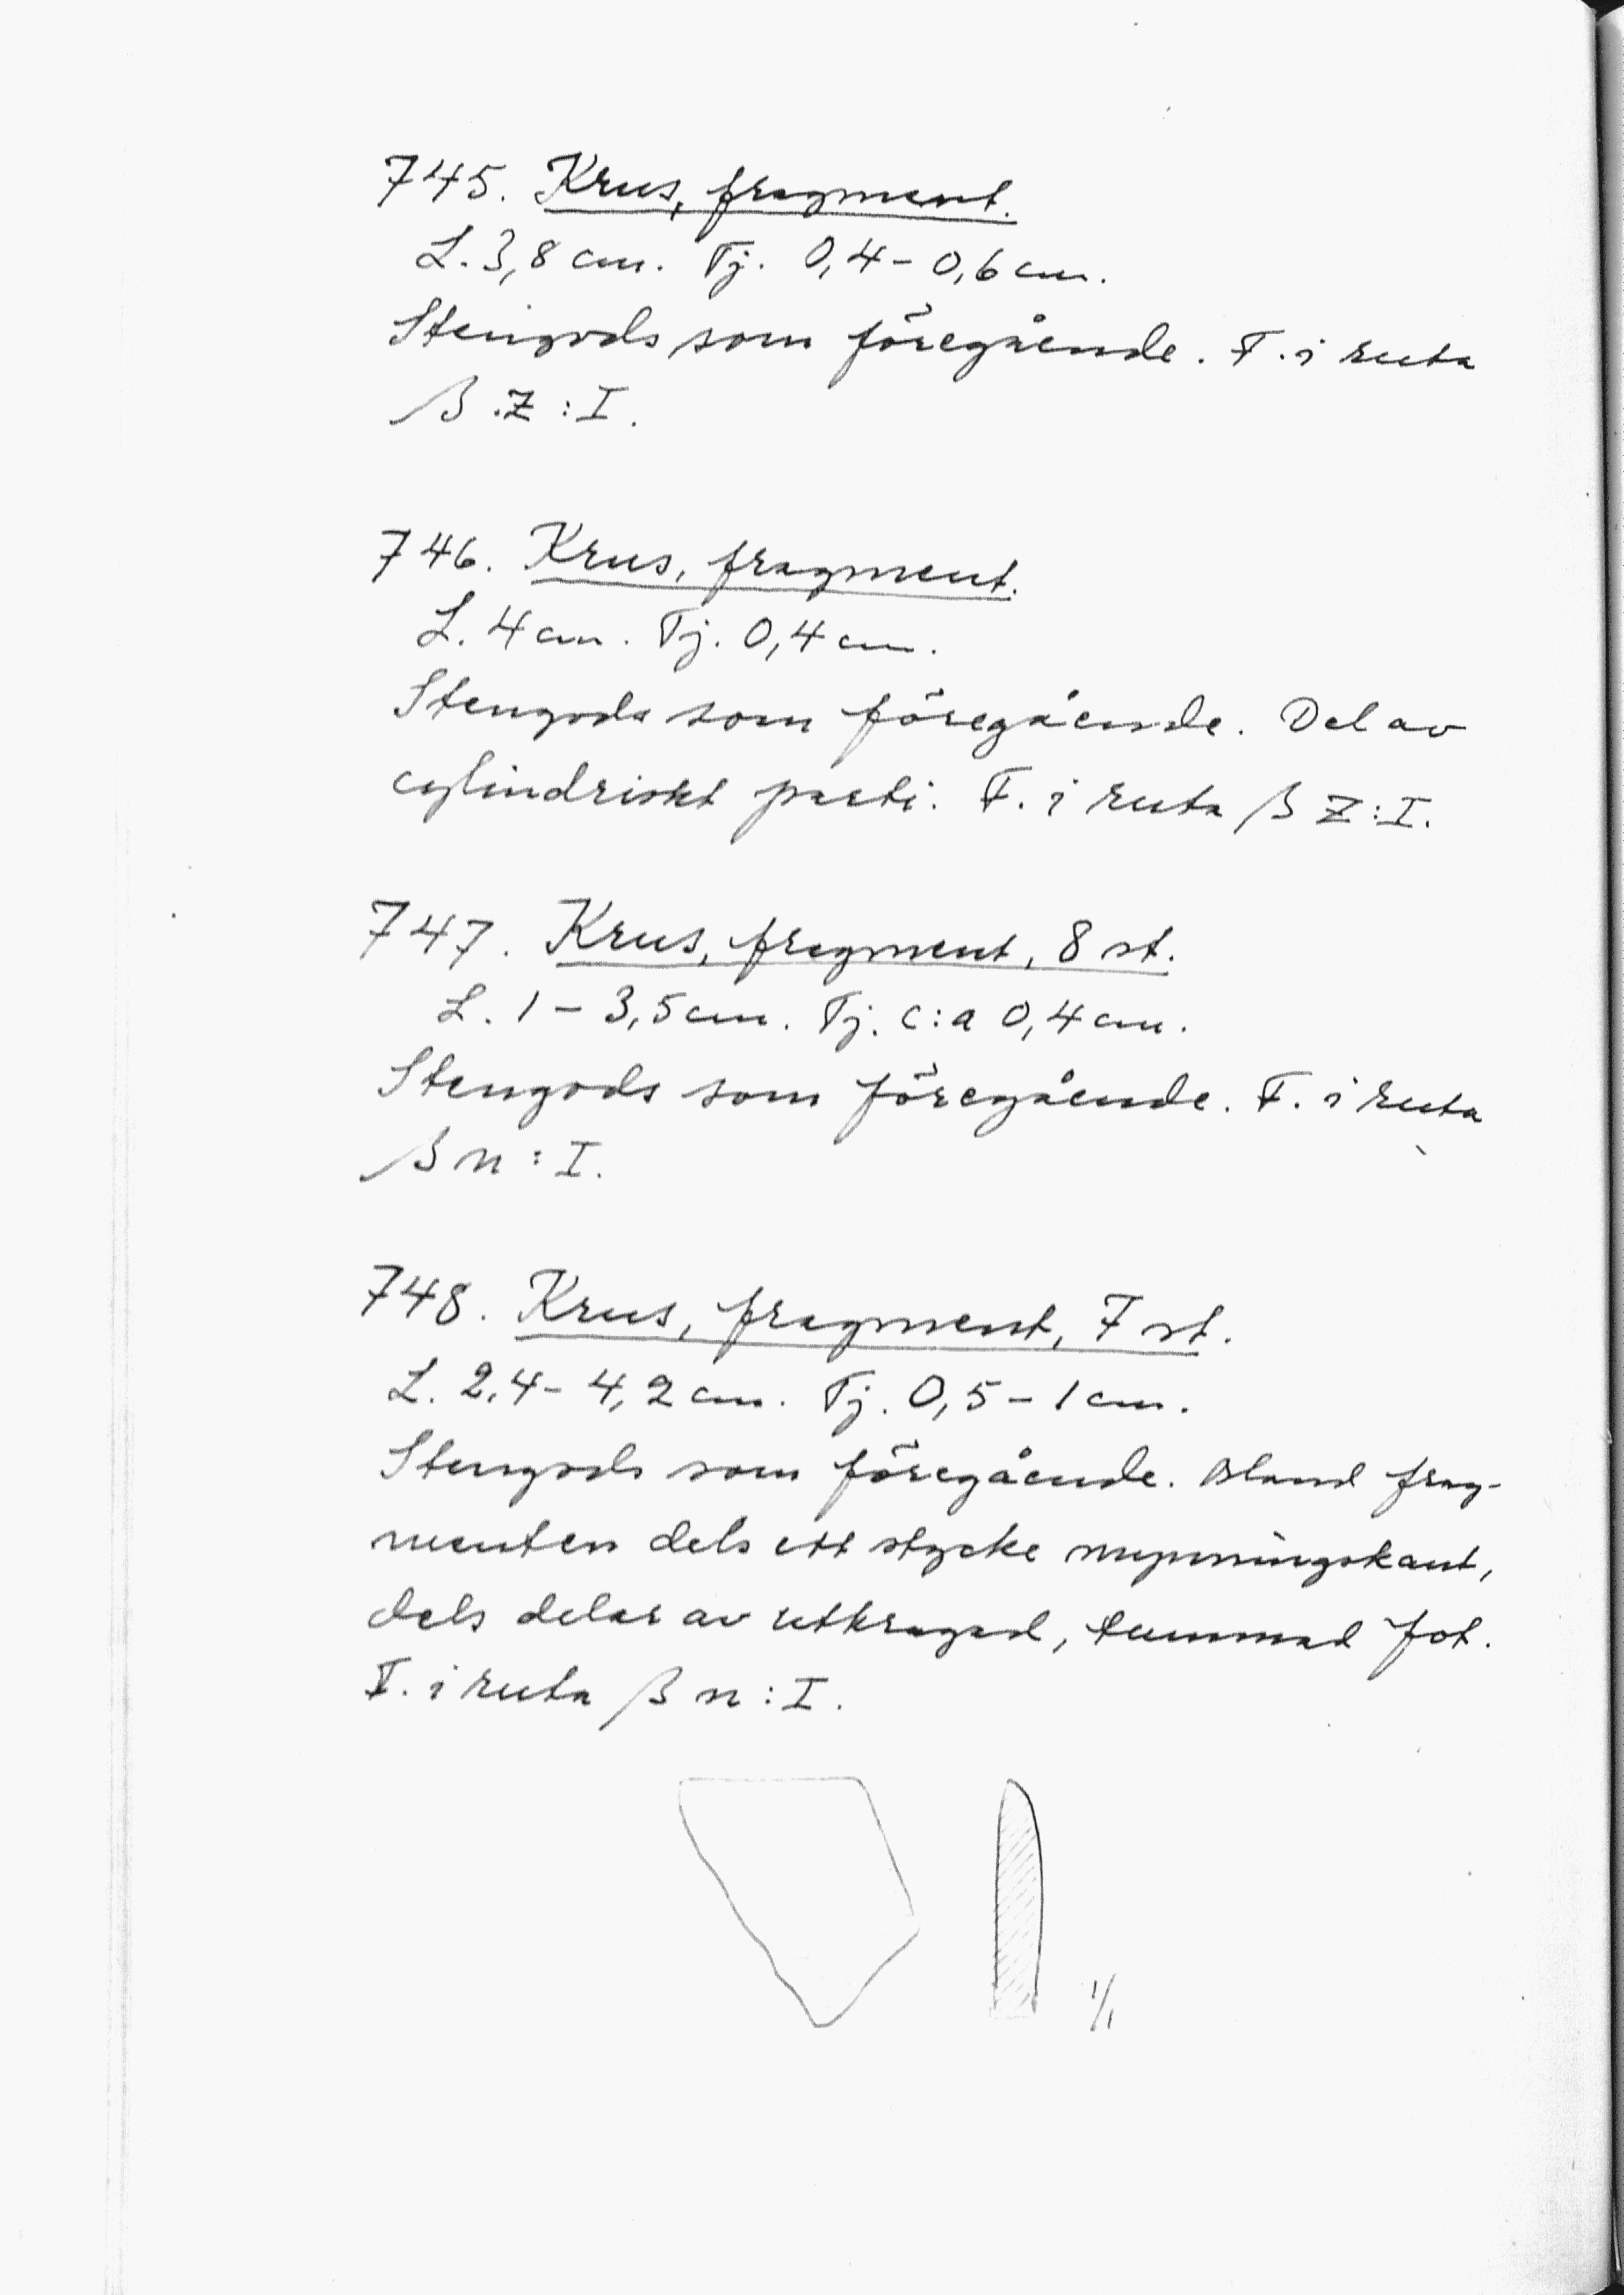 745. Krus, fragment.
L. 3,8 cm. Tj. 0,4 – 0,6 cm.
Stengods som föregående. F. i ruta
β .Z : I.
746. Krus, fragment.
L. 4 cm. Tj. 0,4 cm.
Stengods som föregående. Del av
cylindriskt parti. F. i ruta β Z : I.
747. Krus, fragment, 8 st.
L. 1 – 3,5 cm. Tj. c:a 0,4 cm.
Stengods som föregående. F. i ruta
β n : I.
748. Krus, fragment, 7 st.
L. 2,4 – 4,2 cm. Tj. 0,5 – 1 cm.
Stengods som föregående. Bland frag-
menten dels ett stycke mynningskant,
dels delar av utkragad, tummad fot.
F. i ruta β n : I.
1/1